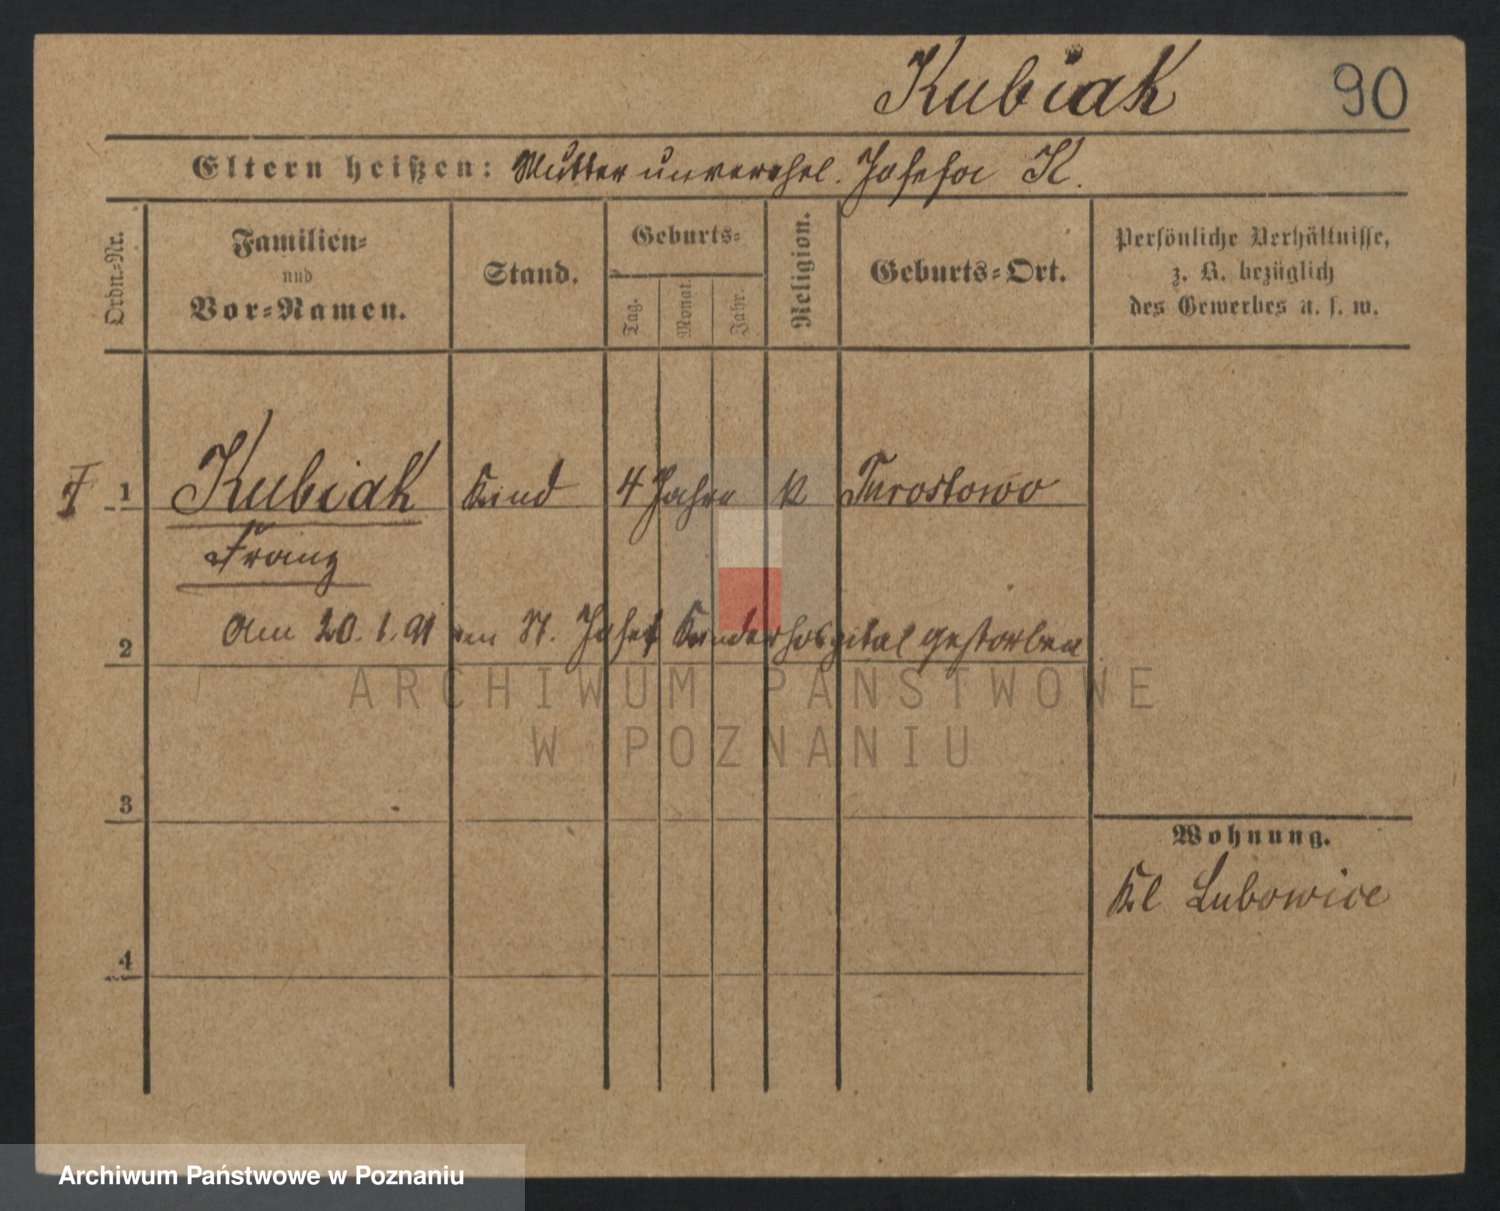 Kubiak 90
Eltern heißen: Mutter unverehl. Josefa K.
Ordn.-Nr.
Familien-
und
Vor-Namen.
Stand.
Geburts-
Tag.
Monat.
Jahr.
Religion.
Geburts-Ort.
Persönliche Verhältnisse,
z. B. bezüglich
des Gewerbes u. s. w.
1 Kubiak Kind 4 Jahre k Turostowo
Franz
Am 20.1.91 im St. Josef Kinderhospital gestorben
2
3
4
Wohnung.
Kl Lubowice
ARCHIWUM PAŃSTWOWE
W POZNANIU
Archiwum Państwowe w Poznaniu